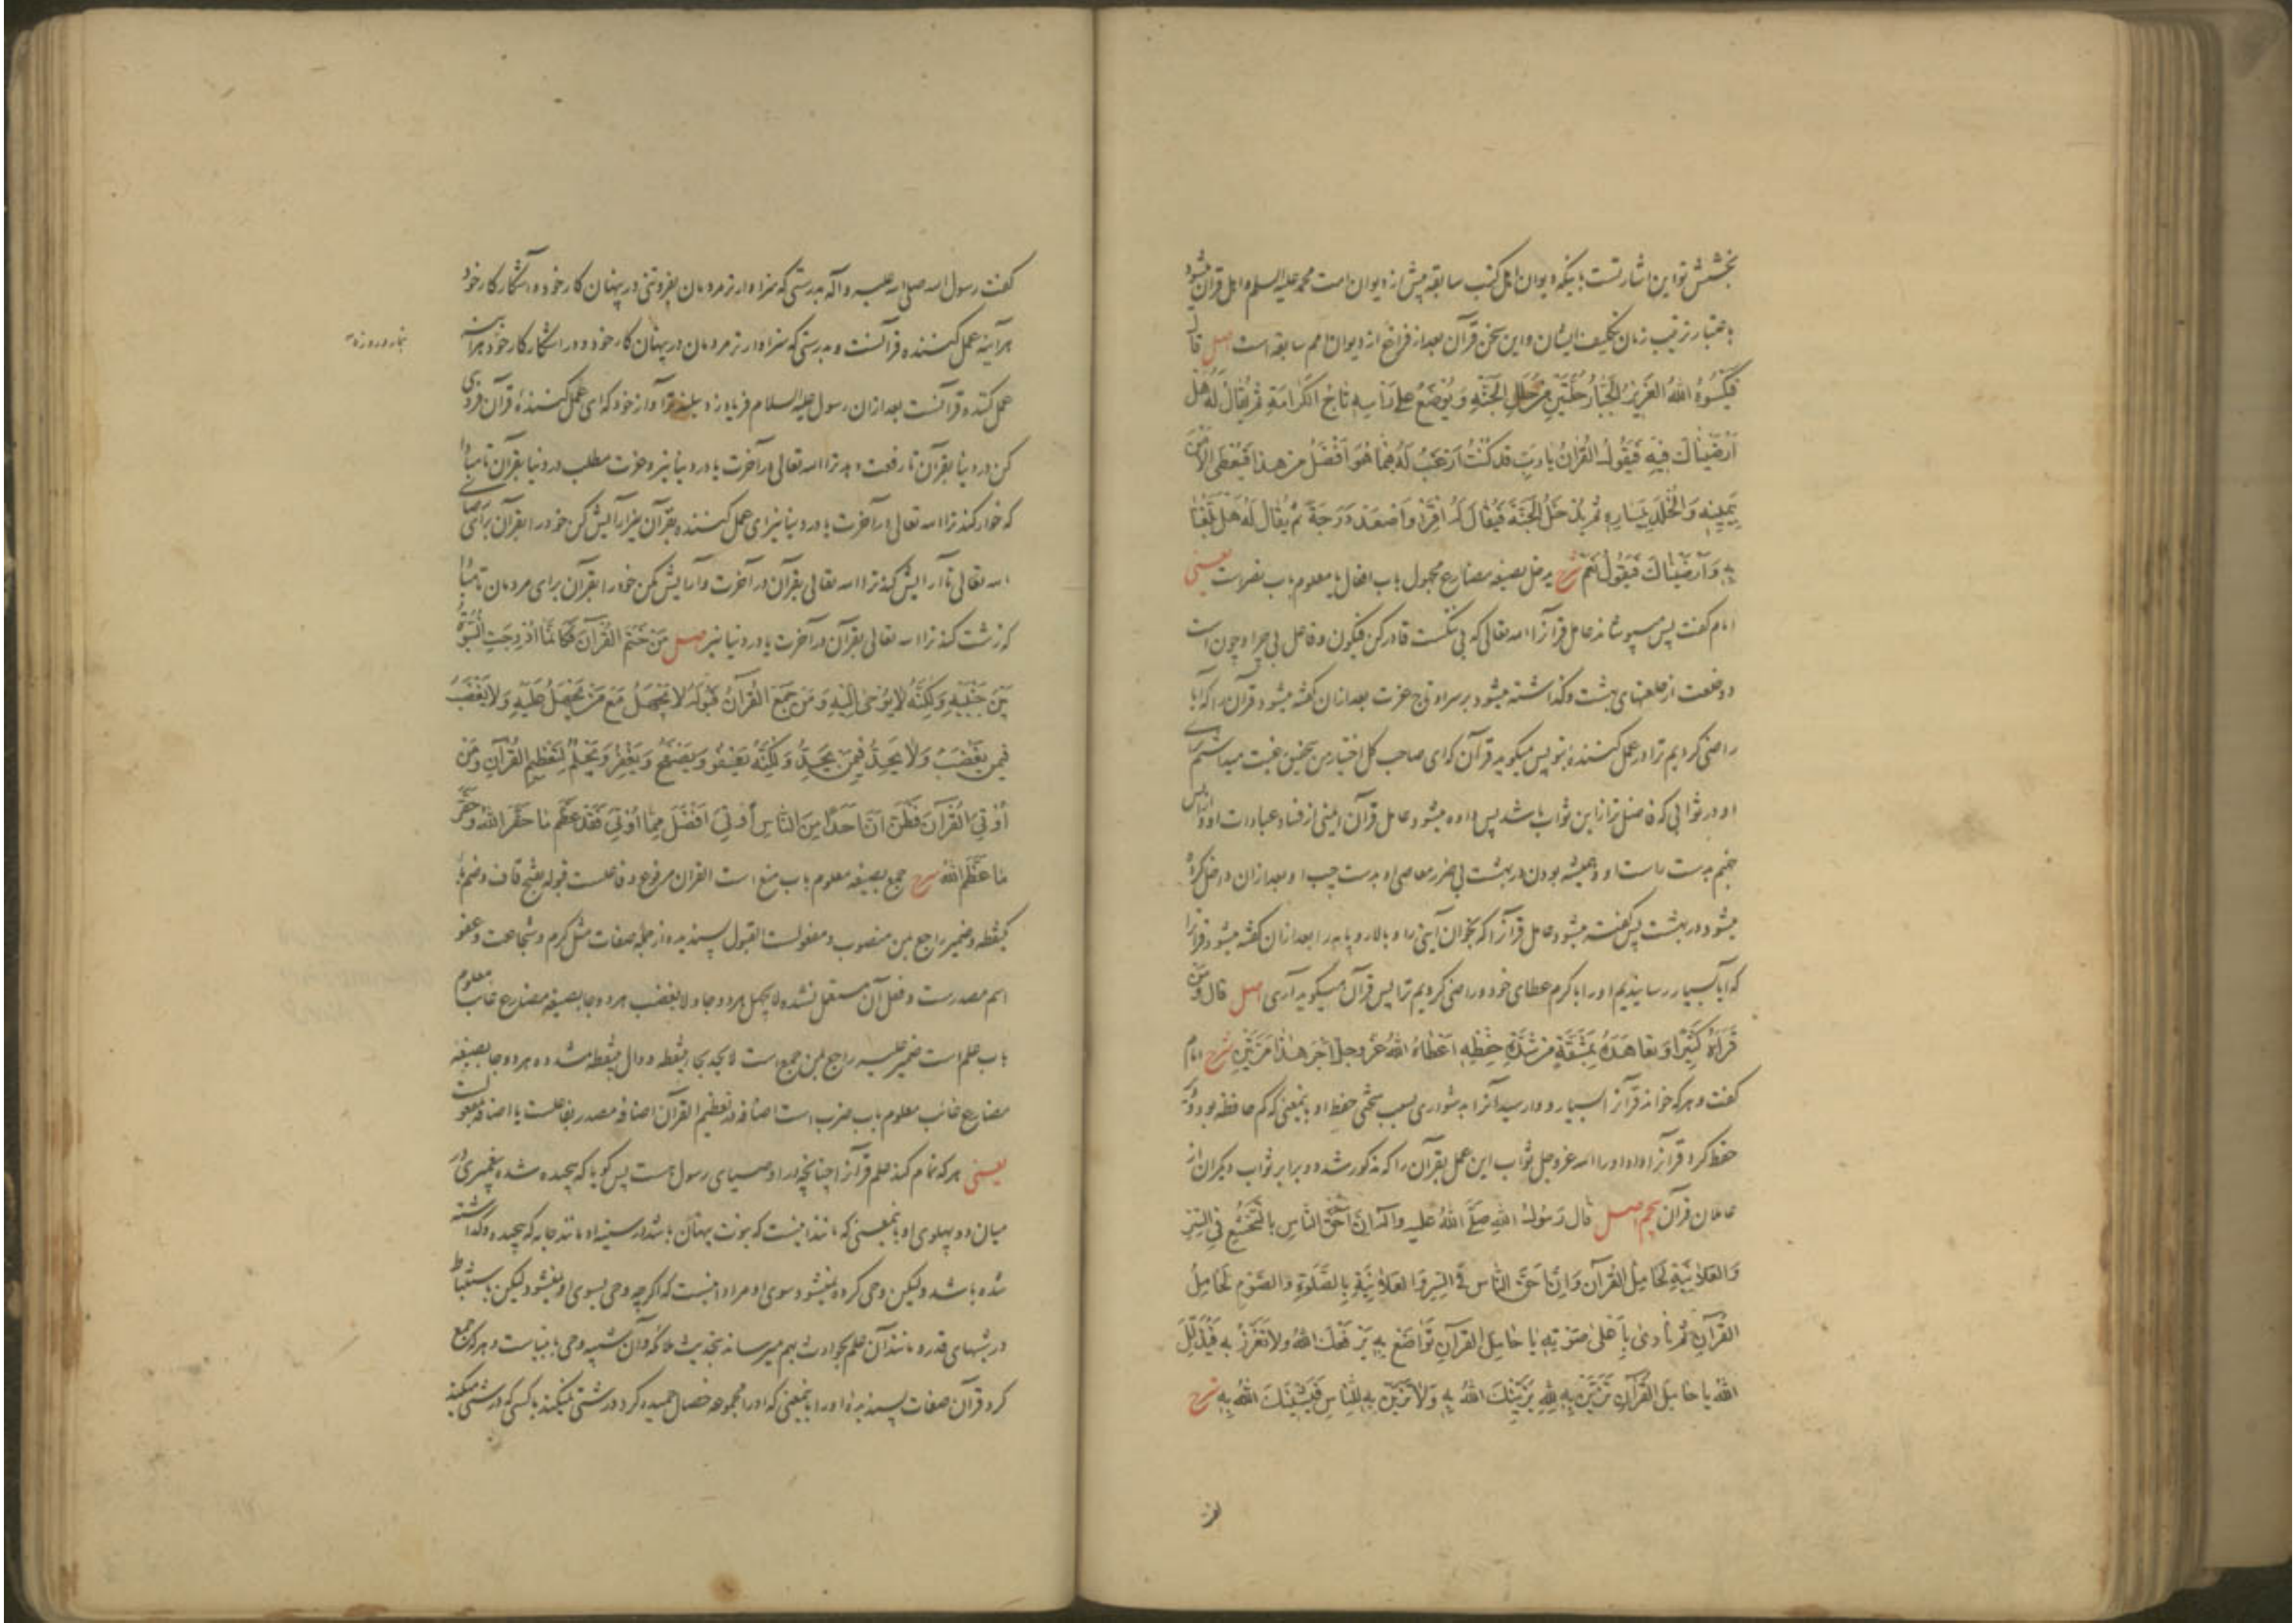 بخشش تو این اشارتست باینکه دیوان اهل کتب سابقه پیش از دیوان امت محمد علیه السلم و اهل قرآن میشود
باعتبار ترتیب زمان تکلیف ایشان و این سخن قرآن بعد از فراغ از دیوان امم سابقه است اصل قال
فَیَکْسُوهُ اللهُ العَزِیزُ الجَبّارُ حُلَّتَیْنِ مِنْ حُلَلِ الجَنَّةِ وَیُوضَعُ عَلی رَأسِهِ تاجُ الکَرامَةِ ثُمَّ یُقالُ لَهُ هَلْ
اَرْضَیْناكَ فِیهِ فَیَقُولُ القُرْآنُ یا رَبِّ قَدْ کُنْتُ اَرْغَبُ لَهُ فِیما هُوَ اَفْضَلُ مِنْ هذا فَیُعْطَی الاَمْنَ
بِیَمِینِهِ وَالْخُلْدَ بِیَسارِهِ ثُمَّ یُدْخَلُ الجَنَّةَ فَیُقالُ لَهُ اقْرَأ وَاصْعَدْ دَرَجَةً ثُمَّ یُقالُ لَهُ هَلْ بَلَغْنا
بِهِ وَاَرْضَیْناكَ فَیَقُولُ نَعَمْ شرح یدخل بصیغه مضارع مجهول باب افعال یا معلوم باب نصرست یعنی
امام گفت پس میپوشاند عامل قرآنرا الله تعالی که بی ننگست قادر کن فیکون و فاعل بی چرا و چون است
دو خلعت از خلعتهای بهشت و گذاشته میشود بر سر او تاج عزت بعد ازان گفته میشود قرآن را که آیا
راضی کردیم ترا در عمل کننده بتو پس میگوید قرآن که ای صاحب کل اختیار من بتحقیق رغبت میداشتم برای
او در ثوابی که فاضل تر ازین ثواب باشد پس داده میشود عامل قرآن ایمنی از فساد عبادات او و از آتش
جهنم بدست راست او و همیشه بودن در بهشت بی ضرر معاصی او بدست چپ او و بعد ازان داخل کرده
میشود در بهشت پس گفته میشود عامل قرآنرا که بخوان آیتی را و بالا رو پایه را بعد ازان گفته میشود قرآنرا
که آیا بسیار رسانیدیم او را با کرم عطای خود و راضی کردیم ترا پس قرآن میگوید آری اصل قال وَمَنْ
قَرَأَهُ کَثِیراً وَتَعاهَدَهُ بِمَشَقَّةٍ مِنْ شِدَّةِ حِفْظِهِ اَعْطاهُ اللهُ عَزَّ وَجَلَّ اَجْرَ هذا مَرَّتَیْنِ شرح امام
گفت و هر که خواند قرآنرا بسیار و وارسید آنرا بدشواری بسبب سختی حفظ او بمعنی که کم حافظه بود و
حفظ کرد قرآنرا داد او را الله عز وجل ثواب این عمل بقرآن را که مذکور شد دو برابر ثواب دیگران از
عاملان قرآن پنجم اصل قالَ رَسُولُ اللهِ صَلَّی اللهُ عَلَیهِ وَآلِهِ اِنَّ اَحَقَّ النّاسِ بِالتَّخَشُّعِ فِی السِّرِّ
وَالعَلانِیَةِ لَحامِلُ القُرْآنِ وَاِنَّ اَحَقَّ النّاسِ فِی السِّرِّ وَالعَلانِیَةِ بِالصَّلوةِ وَالصَّوْمِ لَحامِلُ
القُرْآنِ ثُمَّ نادی بِاَعْلی صَوْتِهِ یا حامِلَ القُرْآنِ تَواضَعْ بِهِ یَرْفَعْكَ اللهُ وَلا تَعَزَّزْ بِهِ فَیُذِلَّكَ
اللهُ یا حامِلَ القُرْآنِ تَزَیَّنْ بِهِ لِلّهِ یُزَیِّنْكَ اللهُ بِهِ وَلا تَزَیَّنْ بِهِ لِلنّاسِ فَیَشِینَكَ اللهُ بِهِ شرح
گفت رسول الله صلی الله علیه و آله بدرستی که سزاوارتر مردمان بفروتنی در پنهان کار خود و آشکار کار خود
هرآینه عمل کننده قرآنست و بدرستی که سزاوارتر مردمان در پنهان کار خود و در آشکار کار خود هرآینه
بنماز و روزه
عمل کننده قرآنست بعد ازان رسول علیه السلام فریاد زد ببلندتر آواز خود که ای عمل کننده قرآن فروتنی
کن در دنیا بقرآن تا رفعت دهد ترا الله تعالی در آخرت یا در دنیا نیز و عزت مطلب در دنیا بقرآن تا مبادا
که خوار کند ترا الله تعالی در آخرت یا در دنیا نیز ای عمل کننده بقرآن آرایش کن خود را بقرآن برای رضای
الله تعالی تا آرایش کند ترا الله تعالی بقرآن در آخرت و آرایش مکن خود را بقرآن برای مردمان تا مبادا
که زشت کند ترا الله تعالی بقرآن در آخرت یا در دنیا نیز اصل مَنْ خَتَمَ القُرْآنَ فَکَاَنَّما اُدْرِجَتِ النُّبُوَّةُ
بَیْنَ جَنْبَیْهِ وَلکِنَّهُ لا یُوحی اِلَیْهِ وَمَنْ جَمَعَ القُرْآنُ قَبُولَهُ لا یَجْهَلُ مَعَ مَنْ یَجْهَلُ عَلَیْهِ وَلا یَغْضَبُ
فِیمَنْ یَغْضَبُ وَلا یَحِدُّ فِیمَنْ یَحِدُّ وَلکِنَّهُ یَعْفُو وَیَصْفَحُ وَیَغْفِرُ وَیَحْلُمُ لِتَعْظِیمِ القُرْآنِ وَمَنْ
اُوتِیَ القُرْآنَ فَظَنَّ اَنَّ اَحَداً مِنَ النّاسِ اُوتِیَ اَفْضَلَ مِمّا اُوتِیَ فَقَدْ عَظَّمَ ما حَقَّرَ اللهُ وَحَقَّرَ
ما عَظَّمَ اللهُ شرح جمع بصیغه معلوم باب منع است القرآن مرفوع و فاعلست قبوله بفتح قاف و ضم با
یکنقطه و ضمیر راجع بمن منصوب و مفعولست القبول پسندیده از جمله صفات مثل کرم و شجاعت و عفو
اسم مصدرست و فعل آن مستعمل نشده لا یجهل هر دو جا و لا یغضب هر دو جا بصیغه مضارع غایب معلوم
باب علم است ضمیر علیه راجع بمن جمع است لا یحد بحاء بینقطه و دال بینقطه مشدده هر دو جا بصیغه
مضارع غائب معلوم باب ضرب است اضافه تعظیم القرآن اضافه مصدر بفاعلست یا اضافه بمفعولست
یعنی هر که تمام کند علم قرآنرا چنانچه در اوصیای رسول هست پس گویا که پیچیده شده پیغمبری در
میان دو پهلوی او بمعنی که مانند اینست که نبوت پنهان باشد در سینه او مانند جامه که پیچیده و گذاشته
شده باشد و لیکن وحی کرده نمیشود سوی او مراد اینست که اگر چه وحی بسوی او نمیشود لیکن باستنباط
در شبهای قدر و مانند آن علم بحوادث بهم میرساند بتحدیث ملائکه و آن شبیه وحی بانبیاست و هر که جمع
کرد قرآن صفات پسندیده او را بمعنی که او را مجموعه خصال حمیده کرد درشتی نمیکند با کسی که درشتی میکند